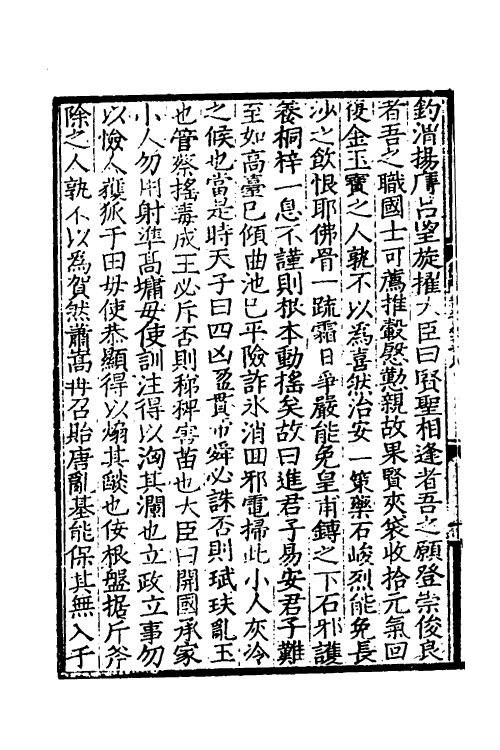 釣渭揚膺占望旋擢大臣曰賢聖相逢者吾之願登崇俊良
者吾之職國士可薦推轂慇懃親故果賢夾袋收拾元氣回
復金玉寳之人孰不以為喜然治安一策藥石峻烈能免長
沙之飲恨耶佛骨一疏霜日爭嚴能免皇甫鎛之下石邪護
養桐梓一息不謹則根本動搖矣故曰進君子易安君子難
至如高臺已傾曲池已平險詐氷消回邪電掃此小人灰冷
之候也當是時天子曰四凶盈貫而舜必誅否則珷玞亂玉
也管蔡搖毒成王必斥否則稊稗害苗也大臣曰開國承家
小人勿用射準髙墉毋使訓注得以洶其瀾也立政立事勿
以憸人獲狐于田毋使恭顯得以煽其燄也侫根盤據斤斧
除之人孰不以為賀然蕭嵩冉召貽唐亂基能保其無入于